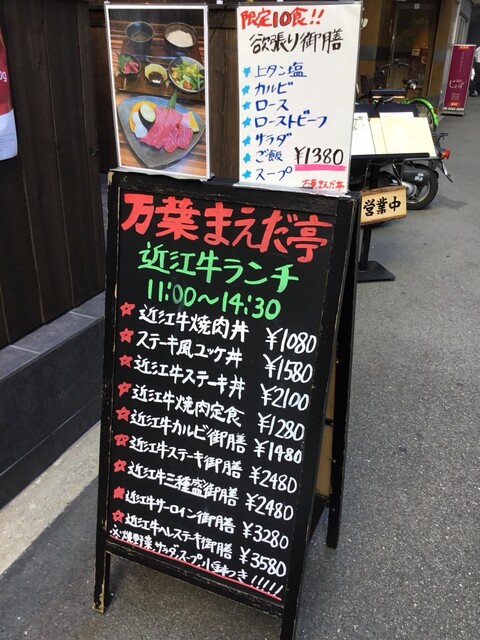 限定10食!!
欲張り御膳
★上タン塩
★カルビ
★ロース
★ローストビーフ
★サラダ
★ご飯
★スープ
¥1380
万葉まえだ亭
営業中
万葉まえだ亭
近江牛ランチ
11:00〜14:30
☆近江牛焼肉丼 ¥1080
☆ステーキ風ユッケ丼 ¥1580
☆近江牛ステーキ丼 ¥2100
☆近江牛焼肉定食 ¥1280
☆近江牛カルビ御膳 ¥1480
☆近江牛ステーキ御膳 ¥2480
☆近江牛三種盛御膳 ¥2480
☆近江牛サーロイン御膳 ¥3280
☆近江牛ヘレステーキ御膳 ¥3580
※焼野菜、サラダ、スープ、小鉢つき!!!!!